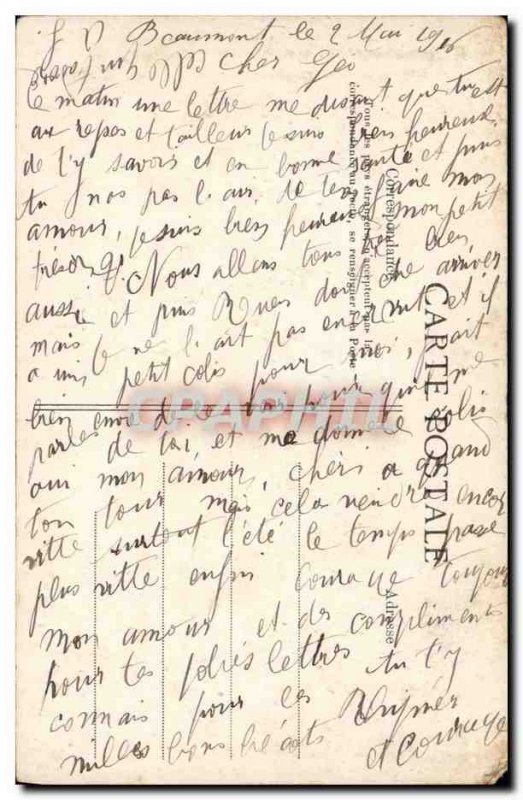 Beaumont le 2 Mai 1916
Cher Géo
le matin une lettre me disant que tu est
au repos et tailleur je suis bien heureuse
de t'y savoir et en bonne santé et puis
tu nas pas l'air de te faire mon
amour, je suis bien heureuse mon petit
trésor Nous allons tous bien
aussi et puis doit être arriver
mais je ne l'ait pas encore vut et il
a mis petit colis pour moi, sait
bien envie de le voir pour quil me
parles de toi, et me donne le colis
oui mon amour chéri a quand
ton tour mais cela viendra encore
vitte surtout l'été le temps passe
plus vitte enfin courage toujours
mon amour et des compliments
pour tes jolies lettres tu t'y
connais pour les
milles bons bécots
et courage
CARTE POSTALE
Correspondance
Tous les pays étrangers n'acceptent pas la
correspondance au recto, se renseigner à la Poste
Adresse
CPAPHIL